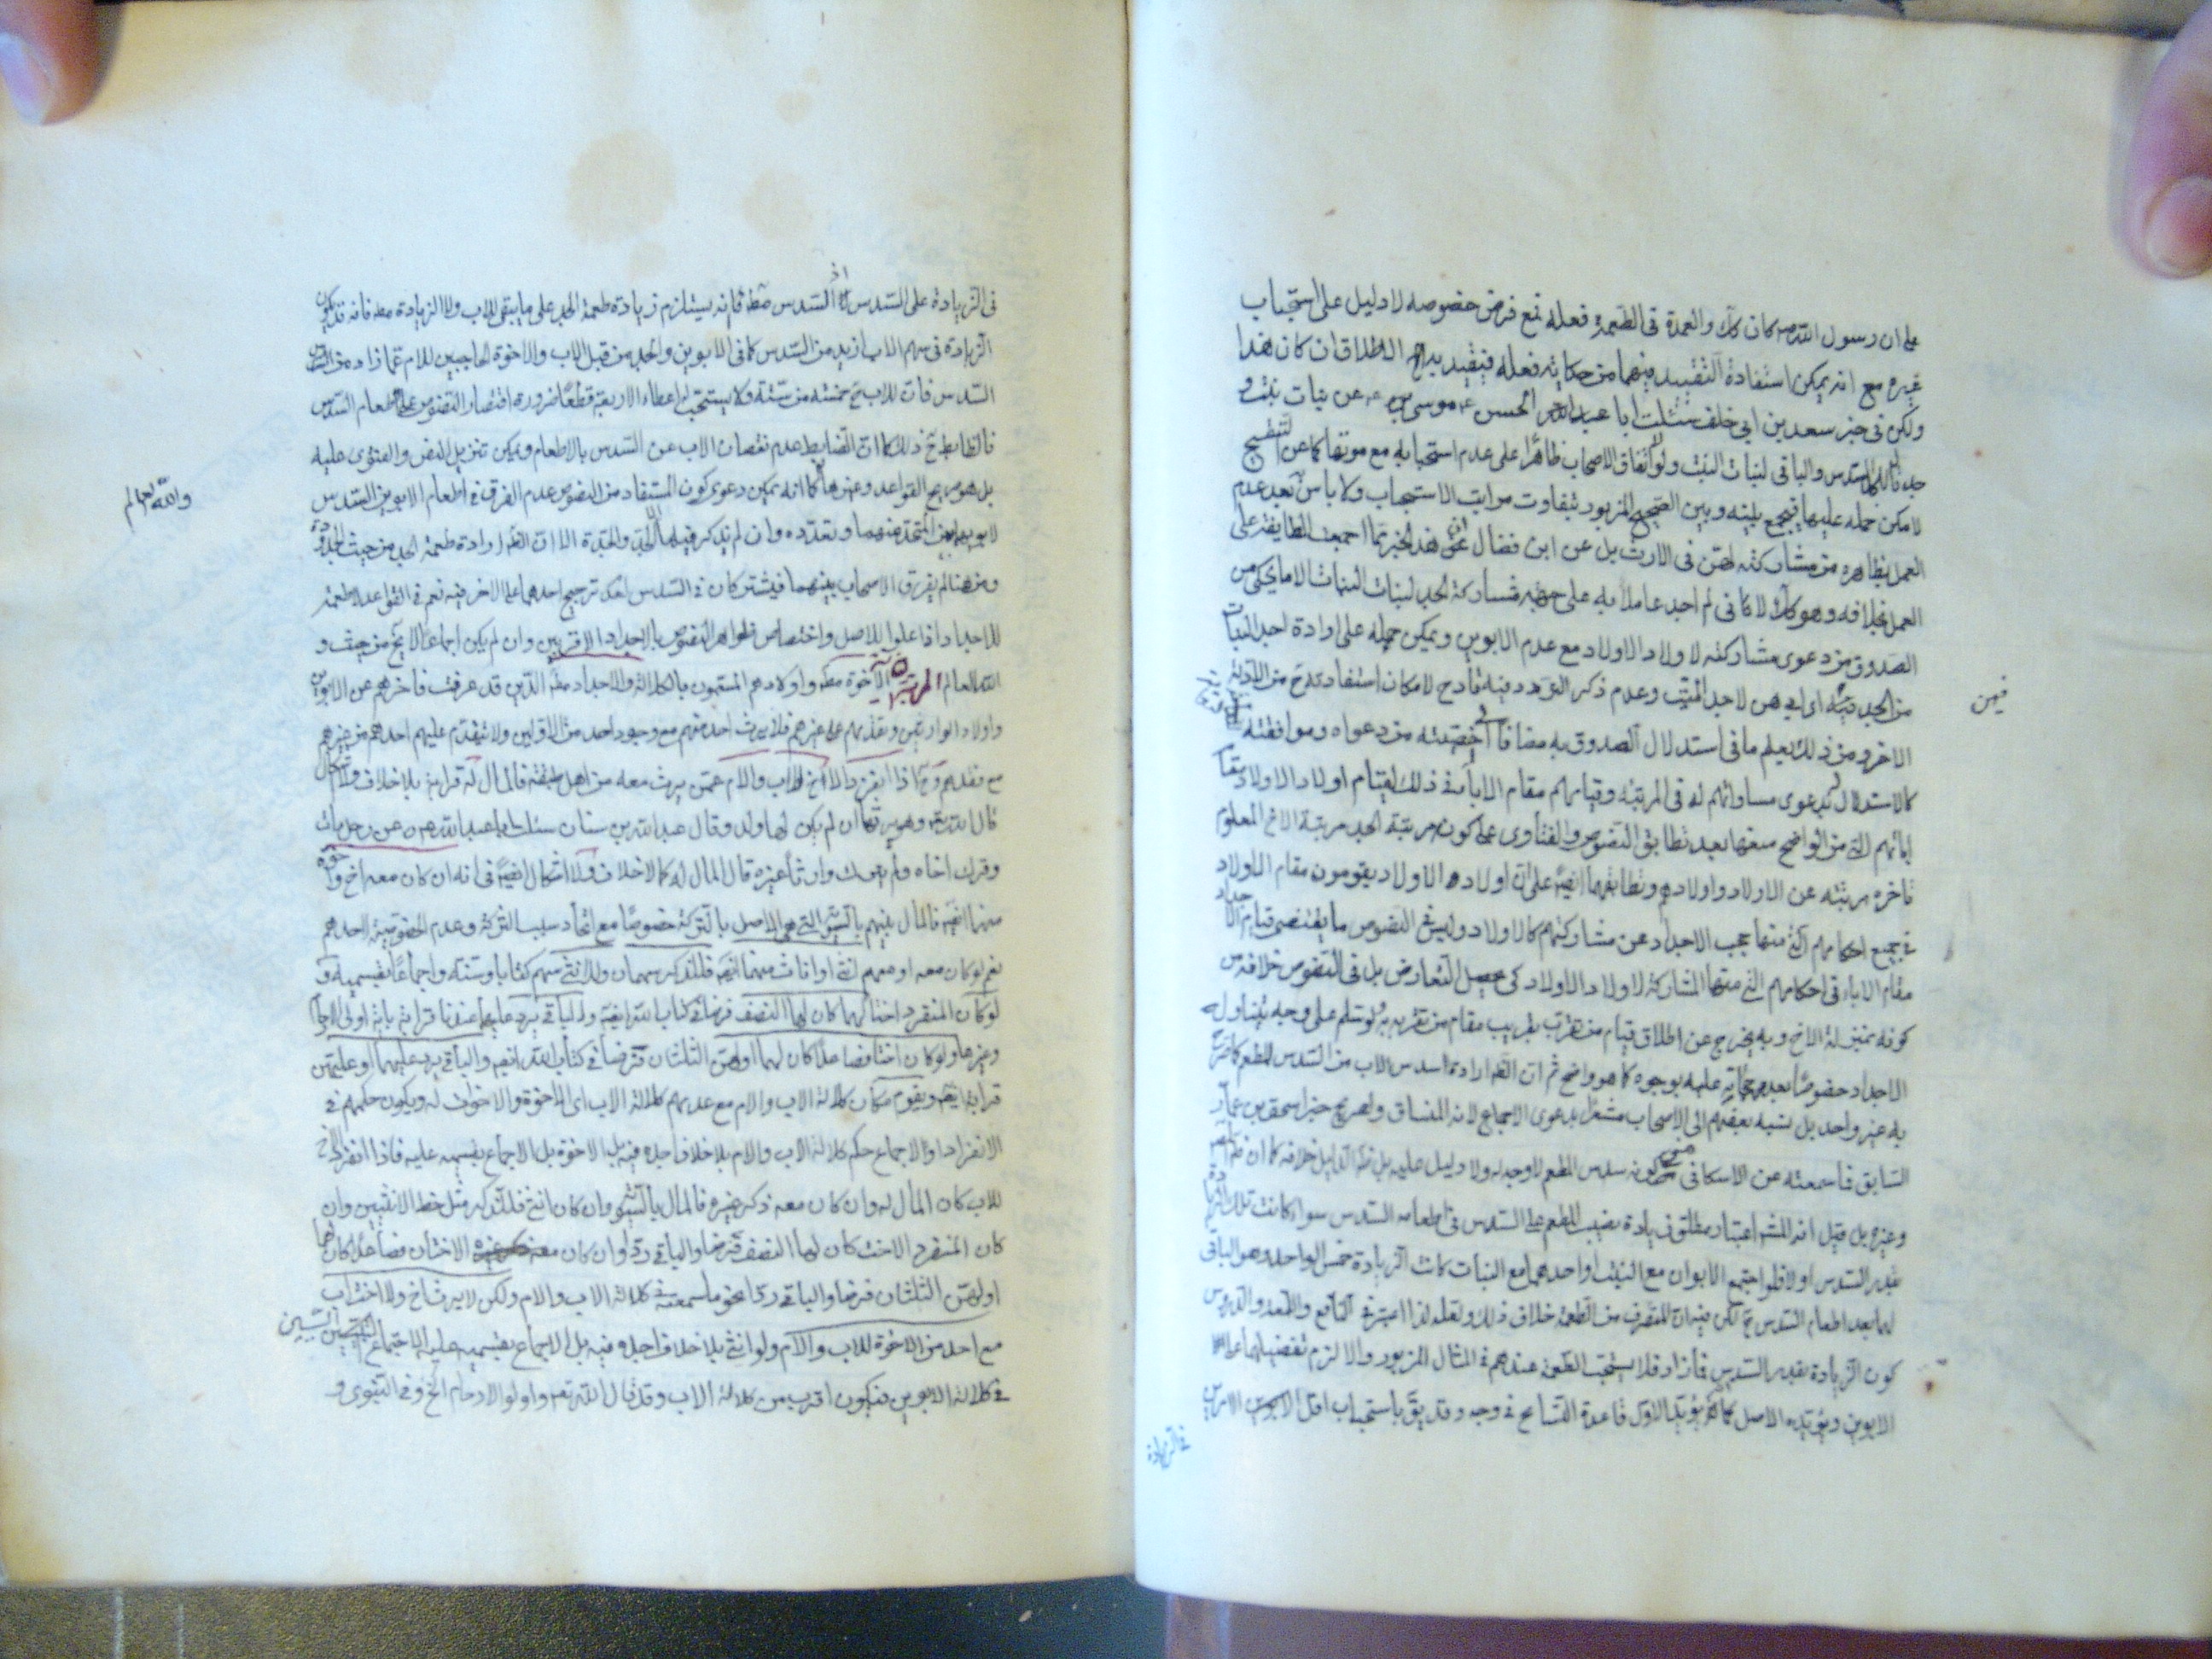 على ان رسول الله ص كان كك والعمدة فى الطعمة فعله نمع فرض خصوصه لا دليل على استحباب
غيره مع انه يمكن استفادة التقييد فيهما من حكاية فعله فيتقيد الاطلاق ان كان هذا
ولكن فى خبر سعد بن ابى خلف سئلت ابا الحسن موسى عن بنات بنت و
جد قال للجد السدس والباقى لبنات البنت ولو اتفاق الاصحاب ظاهرًا على عدم استحبابه مع موتهما
لا مكن حمله عليها فيجمع بينه وبين الصحيح المزبور بتفاوت مراتب الاستحباب ولا باس بعد عدم
العمل بظاهره من مشاركته لهن فى الارث بل عن ابن فضال ان هذا الخبر مما اجمعت الطايفة على
العمل بخلافه وهو كك لانا لم اجد عاملا به على مشاركة الجد لبنات البنات الا ما يحكى عن
الصدوق من دعوى مشاركته لاولاد الاولاد مع عدم الابوين ويمكن حمله على ارادة اجد البنات
من الجد فيه اى ابى هن لا جد الميت وعدم ذكر الرد فيه قادح لامكان استفادته ح من الادلة
فيهن
الاخر ومن ذلك يعلم ما فى استدلال الصدوق به مضافا الى من دعواه وموافقته
كالاستدلال بدعوى مساواتهم له فى المرتبة وقيامهم مقام الاباء فى ذلك لقيام اولاد الاولاد مقام
ابائهم التى من الواضح منعها بعد تطابق النصوص والفتاوى على كون مرتبة الجد مرتبة الاخ المعلوم
تاخره مرتبته عن الاولاد واولادهم وتطابقهما ايضًا على ان اولاد الاولاد يقومون مقام الاولاد
فى جميع احكامهم التى منها حجب الاجداد عن مشاركتهم كالاولاد وليس فى النصوص ما يقتضى قيام الاجداد
مقام الاباء فى احكامهم التى منها المشاركة لاولاد الاولاد كى يحصل التعارض بل فى النصوص خلافه من
كونه بمنزلة الاخ وبه يخرج عن اطلاق قيام من تقرب بقريب مقام من تقرب به لو سلم على وجه يتناول
الاجداد خصوصًا بعد عليه بوجوه كما هو واضح ثم ان الظ ارادة سدس الاب من السدس المطعم كما صرح
به غير واحد بل نسبه بعضهم الى الاصحاب مشعرًا بدعوى الاجماع لانه المنساق ولصريح خبر اسحق بن عمار
السابق فما سمعته عن الاسكافى من كونه سدس المطعم لا وجه له ولا دليل عليه بل خلافه كما ان
وغيره بل قيل انه المشهور اعتبار مطلق زيادة نصيب المطعم على السدس فى اطعامه السدس سواء كانت تلك الزيادة
بقدر السدس اولا فلو اجتمع الابوان مع البنت او احدهما مع البنات كانت الزيادة خمس الواحد وهو الباقى
لهما بعد اطعام السدس لكن فيه ان المنصرف من الطعمة خلاف ذلك ولعله لذا اعتبر فى النافع واللمعة والدروس
كون الزيادة بقدر السدس فما زاد فلا يستحب الطعمة عندهم فى المثال المزبور والا لزم تفضيلها على
الابوين ويؤيده الاصل كما يؤيد الاول قاعدة التسامح فى وجه وقد يقَ باستحباب اقل الامرين
فى الزيادة
فى الزيادة على السدس او السدس فانه يستلزم زيادة طعمة الجد على ما يبقى للاب ولا الزيادة فانه قد يكون
الزيادة فى سهم الاب ازيد من السدس كما فى الابوين والجد من قبل الاب والاخوة الحاجبين للام عما زاد من السدس
السدس فان للاب ح خمسة من ستة ولا يستحب له اعطاء الاربعة قطعًا ضرورة اقتصار النصوص على اطعام السدس
فالضابط ح ذلك كما ان الضابط عدم نقصان الاب عن السدس بالاطعام ويمكن تنزيل النص والفتوى عليه
بل هو صريح القواعد وغيرها كما انه يمكن دعوى كون المستفاد من النصوص عدم الفرق فى اطعام الابوين السدس
والله العالم
لابويهما بين المتحد منهما وتعدده وان لم يذكر فيها الا الجد والجدة الا ان الظ ارادة طعمة الجد من حيث الجدودة
ومن هنا لم يفرق الاصحاب بينهما فيشتركان فى السدس لعدم ترجيح احدهما على الاخر فيه نعم فى القواعد لا طعمة
للاجداد اذا علوا للاصل واختصاص ظواهر النصوص بالاجداد الاقربين وان لم يكن اجماعًا لا يخ من جيف و
الله العالم المرتبة الاخوة واولادهم المسمون بالكلالة والاجداد الذين قد عرفت تاخرهم عن الابوين
واولاد الوارثين وتقدمهم على غيرهم فلا يرث احد منهم مع وجود احد من الاولين ولا يتقدم عليهم احد من غيرهم
مع فقدهم وح فاذا انفرد الاخ للاب والام عمن يرث معه من اهل طبقته فالمال له قرابة بلا خلاف ولا اشكال
قال الله تع وهو يرثها ان لم يكن لها ولد وقال عبد الله بن سنان سئلت ابا عبد الله عن رجل مات
وترك اخاه ولم يترك وارثا غيره قال المال له كما لا خلاف ولا اشكال ايضًا فى انه ان كان معه اخ واخوة
منهما ايضًا فالمال بينهم بالسوية التى هى الاصل بالتركة خصوصًا مع اتحاد سبب الشركة وعدم الخصوصية لاحدهم
نعم لو كان معه او معهم انثى او اناث منهما ايضًا فللذكر سهمان وللانثى سهم كتابًا وسنة واجماعًا بقسميه و
لو كان المنفرد اختا لهما كان لها النصف فرضا فى كتاب الله ايضًا والباقى يرد عليها عندنا قرابة باية اولى الارحام
وغيرها ولو كان اختان فصاعدًا كان لهما او لهن الثلثان فرضا فى كتاب الله ايضًا والباقى يرد عليهما او عليهن
قرابة ايضًا ويقوم مقام كلالة الاب والام مع عدمهم كلالة الاب اى الاخوة والاخوات له ويكون حكمهم فى
الانفراد والاجماع حكم كلالة الاب والام بلا خلاف اجده فيه بل الاجماع بقسميه عليه فاذا انفرد الاخ
للاب كان المال له وان كان معه ذكر غيره فالمال بالسوية وان كان انثى فللذكر مثل حظ الانثيين وان
كان المنفرد الاخت كان لها النصف فرضا والباقى ردًا وان كان الاختان فصاعدًا كان لهما
او لهن الثلثان فرضا والباقى ردًا بنحو ما سمعته فى كلالة الاب والام ولكن لا يرث اخ ولا اخت لاب
مع احد من الاخوة للاب والام ولو انثى بلا خلاف اجده فيه بل الاجماع بقسميه عليه لاجتماع السببين
فى كلالة الابوين فيكون اقرب من كلالة الاب وقد قال الله تع واولوا الارحام الخ وفى النبوى و